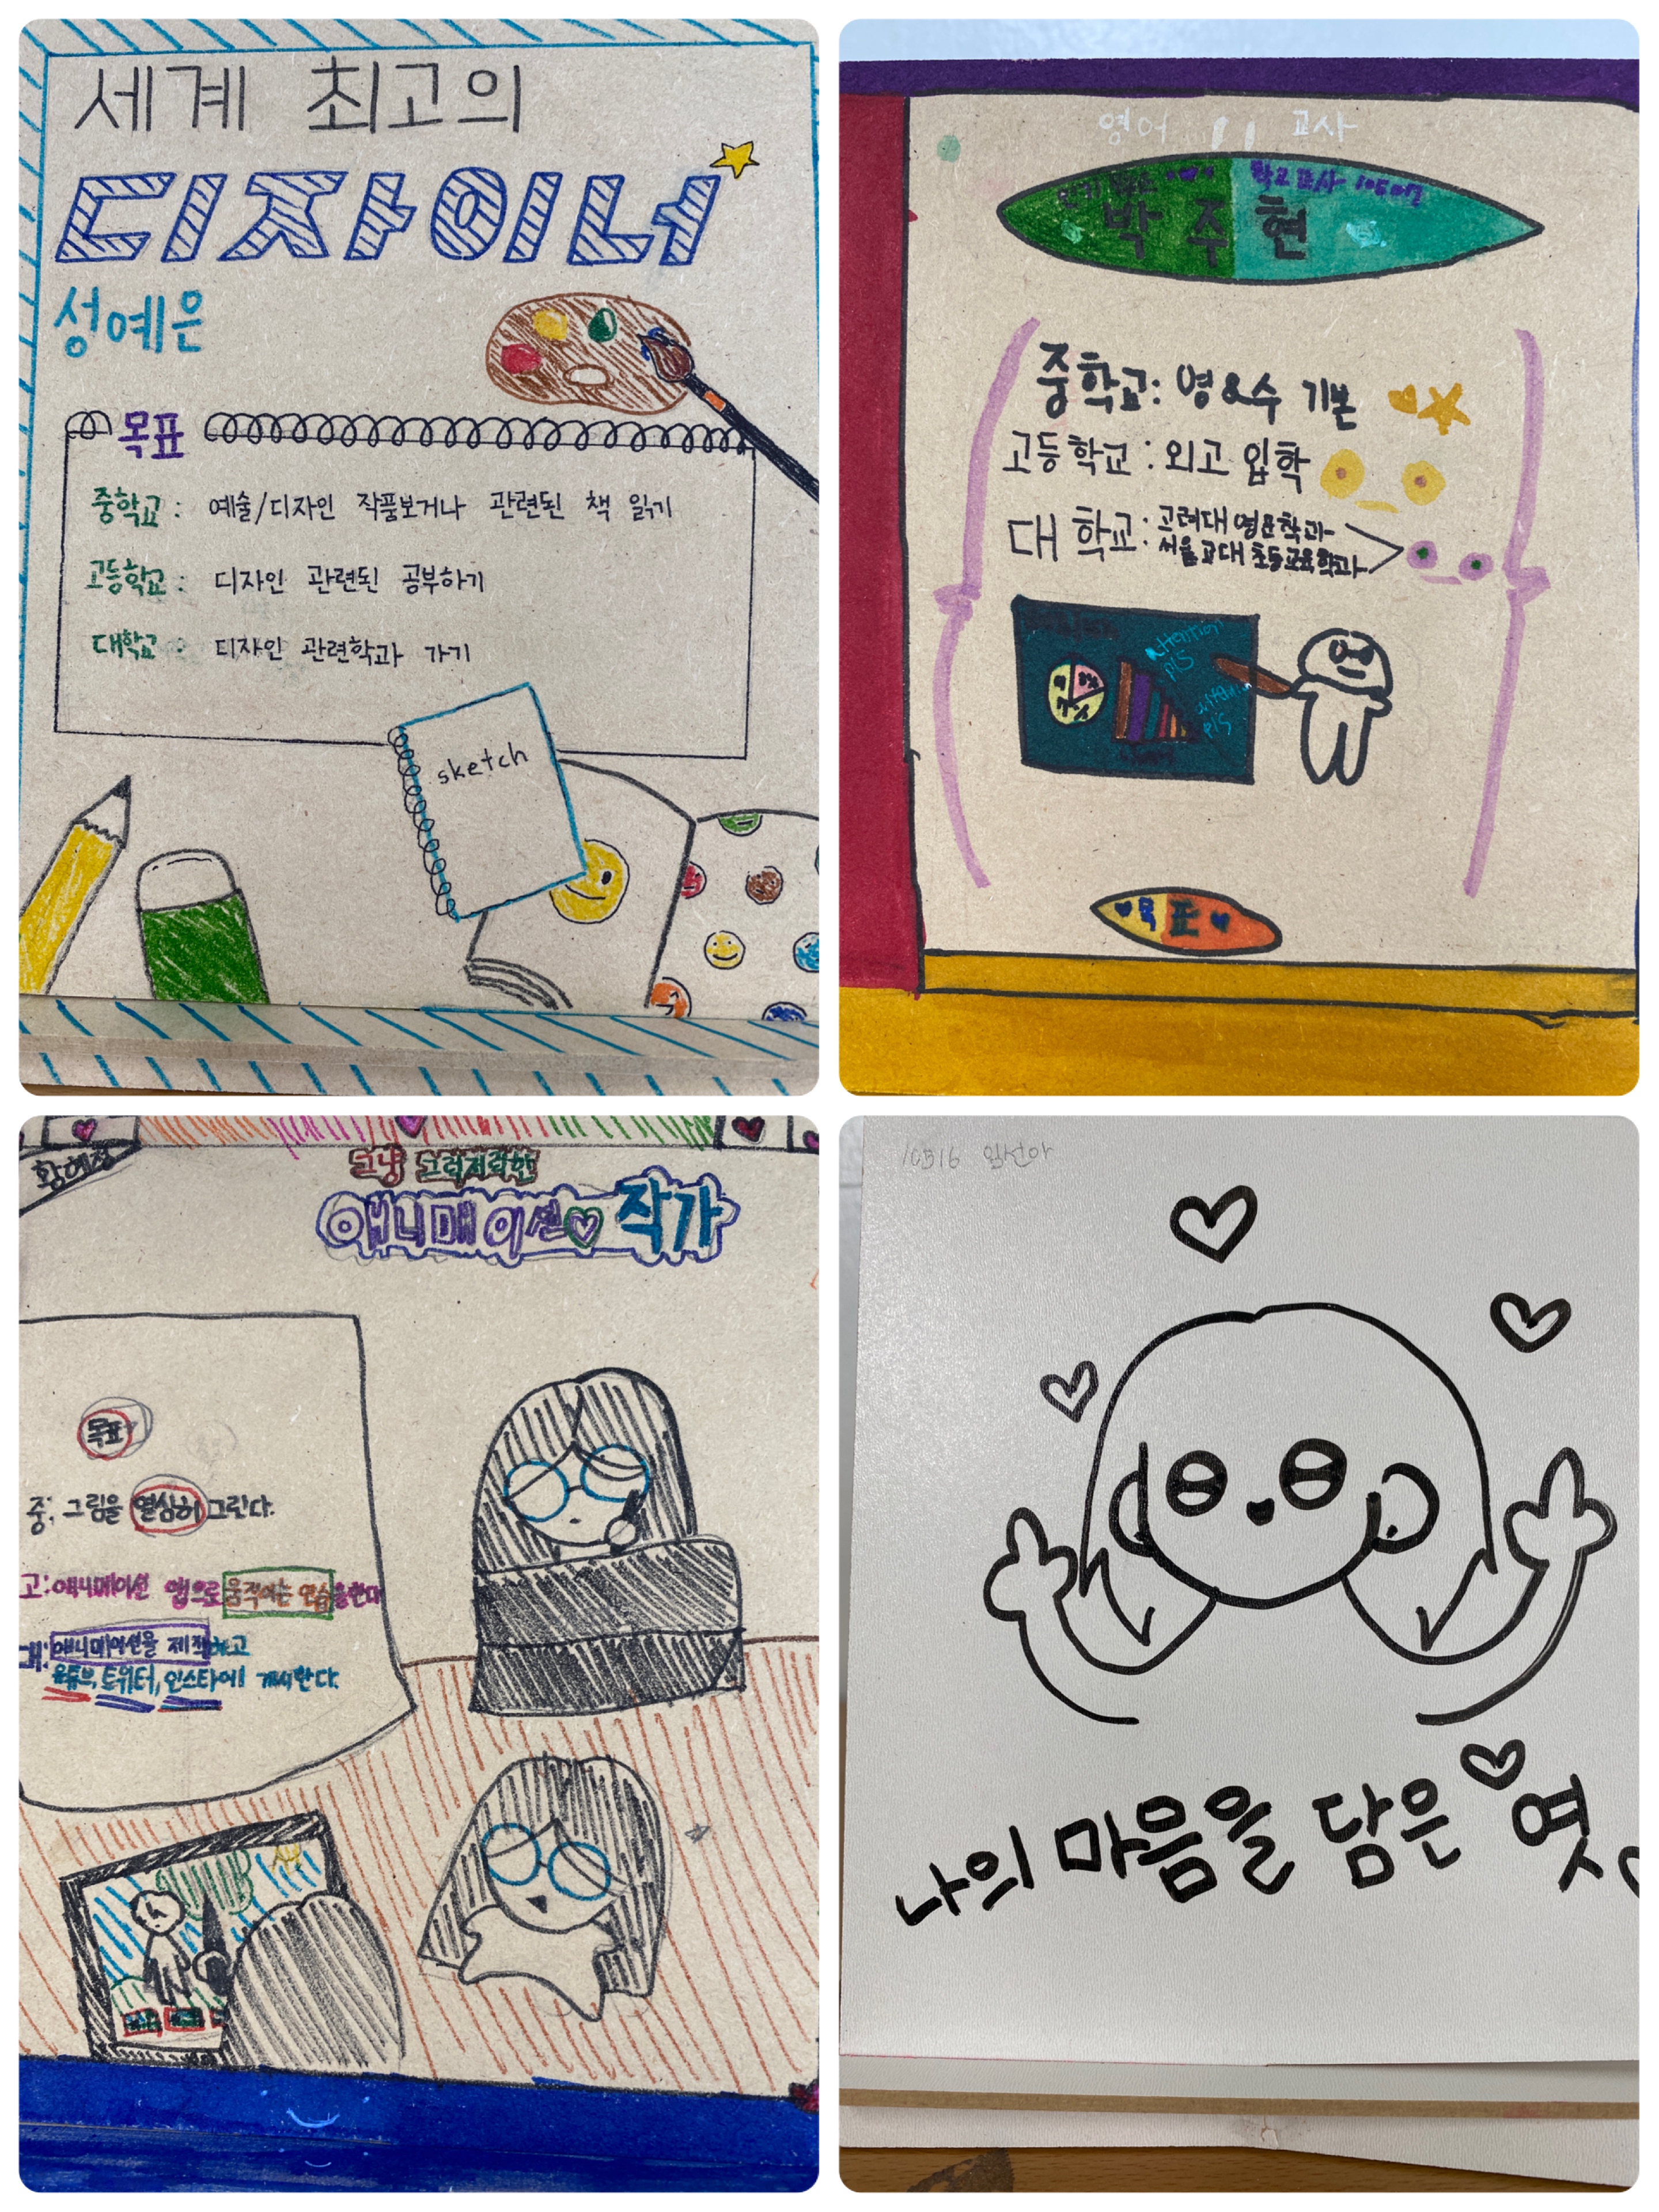 세계 최고의
디자이너
성예은
목표
중학교 : 예술/디자인 작품보거나 관련된 책 읽기
고등학교 : 디자인 관련된 공부하기
대학교 : 디자인 관련학과 가기
sketch
영어 교사
학교 교사
박주현
중학교: 영&수 기본
고등학교 : 외고 입학
대학교: 고려대 영문학과
서울교대 초등교육학과
Attention
pls
pls
목표
황혜정
그냥 그럭저럭한
애니메이션 작가
목표
중: 그림을 열심히 그린다.
고: 애니메이션 앱으로 움직이는 연습을한다
대: 애니메이션을 제작하고
유튜브, 트위터, 인스타에 게시한다.
10516 임선아
나의 마음을 담은 엿